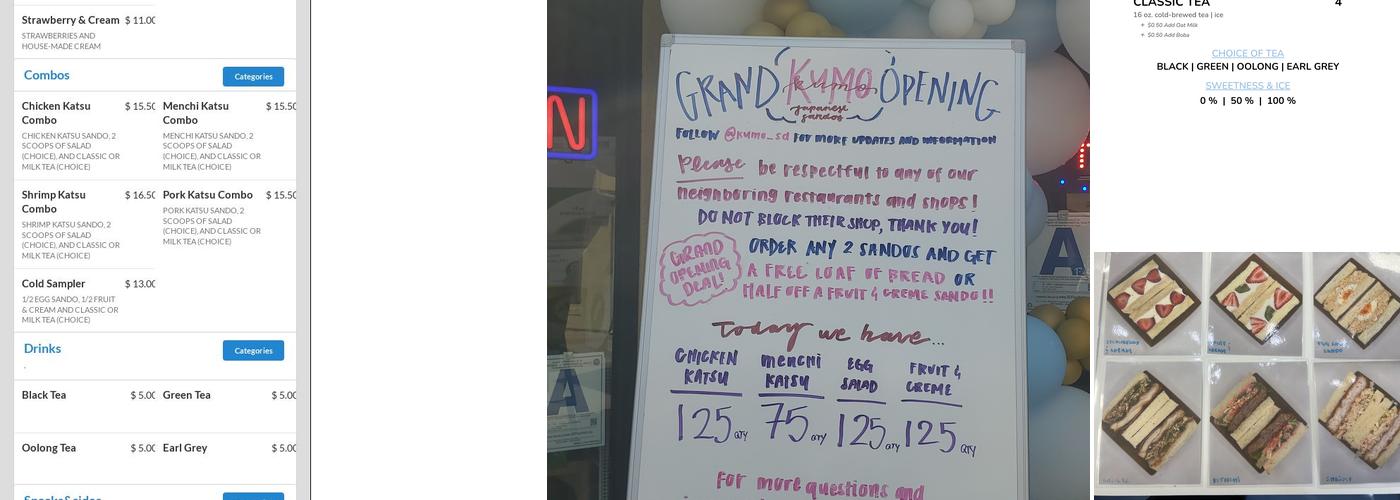 Strawberry & Cream $ 11.00
STRAWBERRIES AND
HOUSE-MADE CREAM
Combos
Categories
Chicken Katsu $ 15.50
Combo
CHICKEN KATSU SANDO, 2
SCOOPS OF SALAD
(CHOICE), AND CLASSIC OR
MILK TEA (CHOICE)
Menchi Katsu $ 15.50
Combo
MENCHI KATSU SANDO, 2
SCOOPS OF SALAD
(CHOICE), AND CLASSIC OR
MILK TEA (CHOICE)
Shrimp Katsu $ 16.50
Combo
SHRIMP KATSU SANDO, 2
SCOOPS OF SALAD
(CHOICE), AND CLASSIC OR
MILK TEA (CHOICE)
Pork Katsu Combo $ 15.50
PORK KATSU SANDO, 2
SCOOPS OF SALAD
(CHOICE), AND CLASSIC OR
MILK TEA (CHOICE)
Cold Sampler $ 13.00
1/2 EGG SANDO, 1/2 FRUIT
& CREAM AND CLASSIC OR
MILK TEA (CHOICE)
Drinks
Categories
.
Black Tea $ 5.00
Green Tea $ 5.00
Oolong Tea $ 5.00
Earl Grey $ 5.00
GRAND KUMO OPENING
kumo
japanese
sandos
FOLLOW @kumo_sd FOR MORE UPDATES AND INFORMATION
Please be respectful to any of our
neighboring restaurants and shops!
DO NOT BLOCK THEIR SHOP, THANK YOU!
GRAND
OPENING
DEAL!
ORDER ANY 2 SANDOS AND GET
A FREE LOAF OF BREAD OR
HALF OFF A FRUIT & CREME SANDO!!
Today we have...
CHICKEN
KATSU
125 QTY
menchi
KATSU
75 QTY
EGG
SALAD
125 QTY
FRUIT &
CREME
125 QTY
For more questions and
N
A
A
CLASSIC TEA 4
16 oz. cold-brewed tea | ice
+ $0.50 Add Oat Milk
+ $0.50 Add Boba
CHOICE OF TEA
BLACK | GREEN | OOLONG | EARL GREY
SWEETNESS & ICE
0 % | 50 % | 100 %